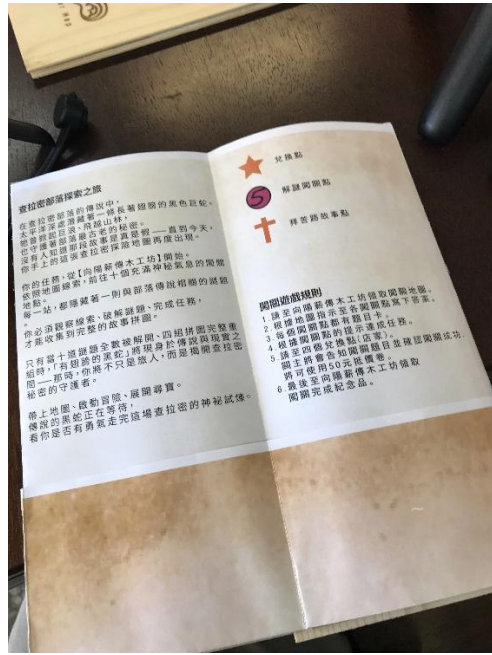 查拉密部落探索之旅
在查拉密部落的傳說中，
太平洋深處潛藏著一條長著翅膀的黑色巨蛇、
牠曾掀起巨浪、飛越山林，
也守護著部落最古老的秘密。
沒有人知道那段故事是真是假──直到今天，
你手上的這張查拉密探險地圖再度出現。
你的任務，從【向陽薪傳木工坊】開始。
依照地圖線索，前往十個充滿神秘氣息的闖關
地點。
每一站，都隱藏著一則與部落傳說相連的謎題
、
你必須觀察線索、破解謎題、完成任務，
才能收集到完整的故事拼圖。
只有當十道謎題全數被解開、四組拼圖完整重
組時，「有翅膀的黑蛇」將現身於傳說與現實之
間──那時，你將不只是旅人，而是揭開查拉密
秘密的守護者。
帶上地圖、啟動冒險，展開尋寶。
傳說的黑蛇正在等待，
看你是否有勇氣走完這場查拉密的神祕試煉。
兌換點
5
解謎闖關點
拜苦路故事點
闖關遊戲規則
1. 請至向陽薪傳木工坊領取闖關地圖。
2. 根據地圖指示至各闖關點寫下答案。
3. 每個闖關點都有題目卡。
4. 根據闖關點的提示達成任務。
5. 請至四個兌換點(店家)。
關主將會告知闖關題目並確認闖關成功，
將可使用50元抵價卷。
6. 最後至向陽薪傳木工坊領取
闖關完成紀念品。